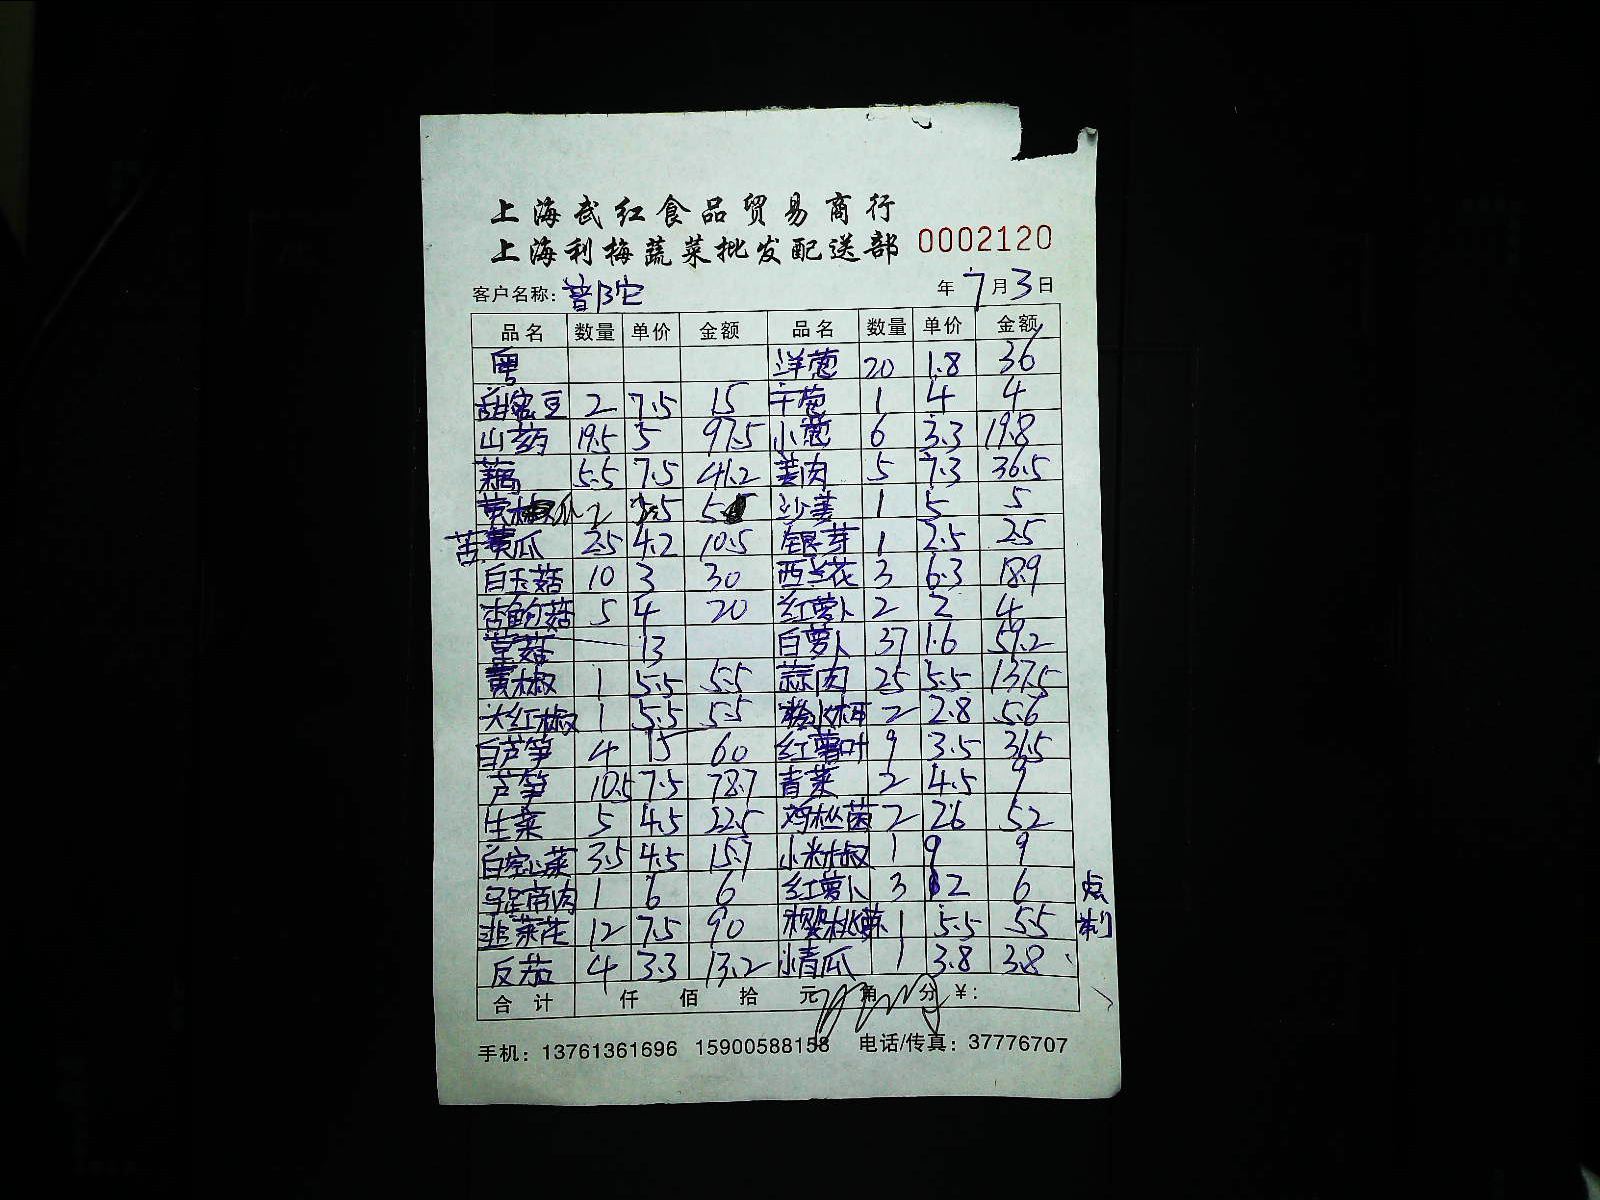 上海武红食品贸易商行
上海利梅蔬菜批发配送部 0002120
客户名称：普陀 年 7 月 3 日
品名 数量 单价 金额 品名 数量 单价 金额
粤 洋葱 20 1.8 36
甜蜜豆 2 7.5 15 干葱 1 4 4
山药 19.5 5 97.5 小葱 6 3.3 19.8
藕 5.5 7.5 41.2 姜肉 5 7.3 36.5
黄 瓜 2 2.5 5 沙姜 1 5 5
苦瓜 2.5 4.2 10.5 银芽 1 2.5 2.5
白玉菇 10 3 30 西兰花 3 6.3 18.9
杏鲍菇 5 4 20 红萝卜 2 2 4
草菇 13 白萝卜 37 1.6 59.2
黄椒 1 5.5 5.5 蒜肉 25 5.5 137.5
大红椒 1 5.5 5.5 2 2.8 5.6
白芦笋 4 15 60 红薯叶 9 3.5 31.5
芦笋 10.5 7.5 78.7 青菜 2 4.5 9
生菜 5 4.5 22.5 鸡枞菌 2 26 52
3.5 4.5 15.7 小米椒 1 9 9
马蹄肉 1 6 6 红萝卜 3 2 6 点
韭菜花 12 7.5 90 樱桃萝 1 5.5 5.5 制
反茄 4 3.3 13.2 小青瓜 1 3.8 3.8
合计 仟 佰 拾 元 角 分 ¥：
手机：13761361696 15900588158 电话/传真：37776707